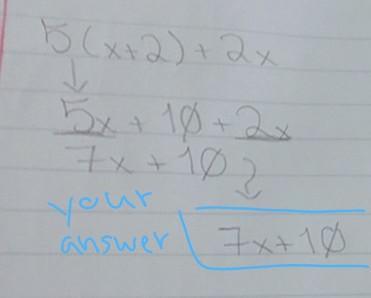 5(x+2)+2x
5x+10+2x
7x+10
your
answer
7x+10